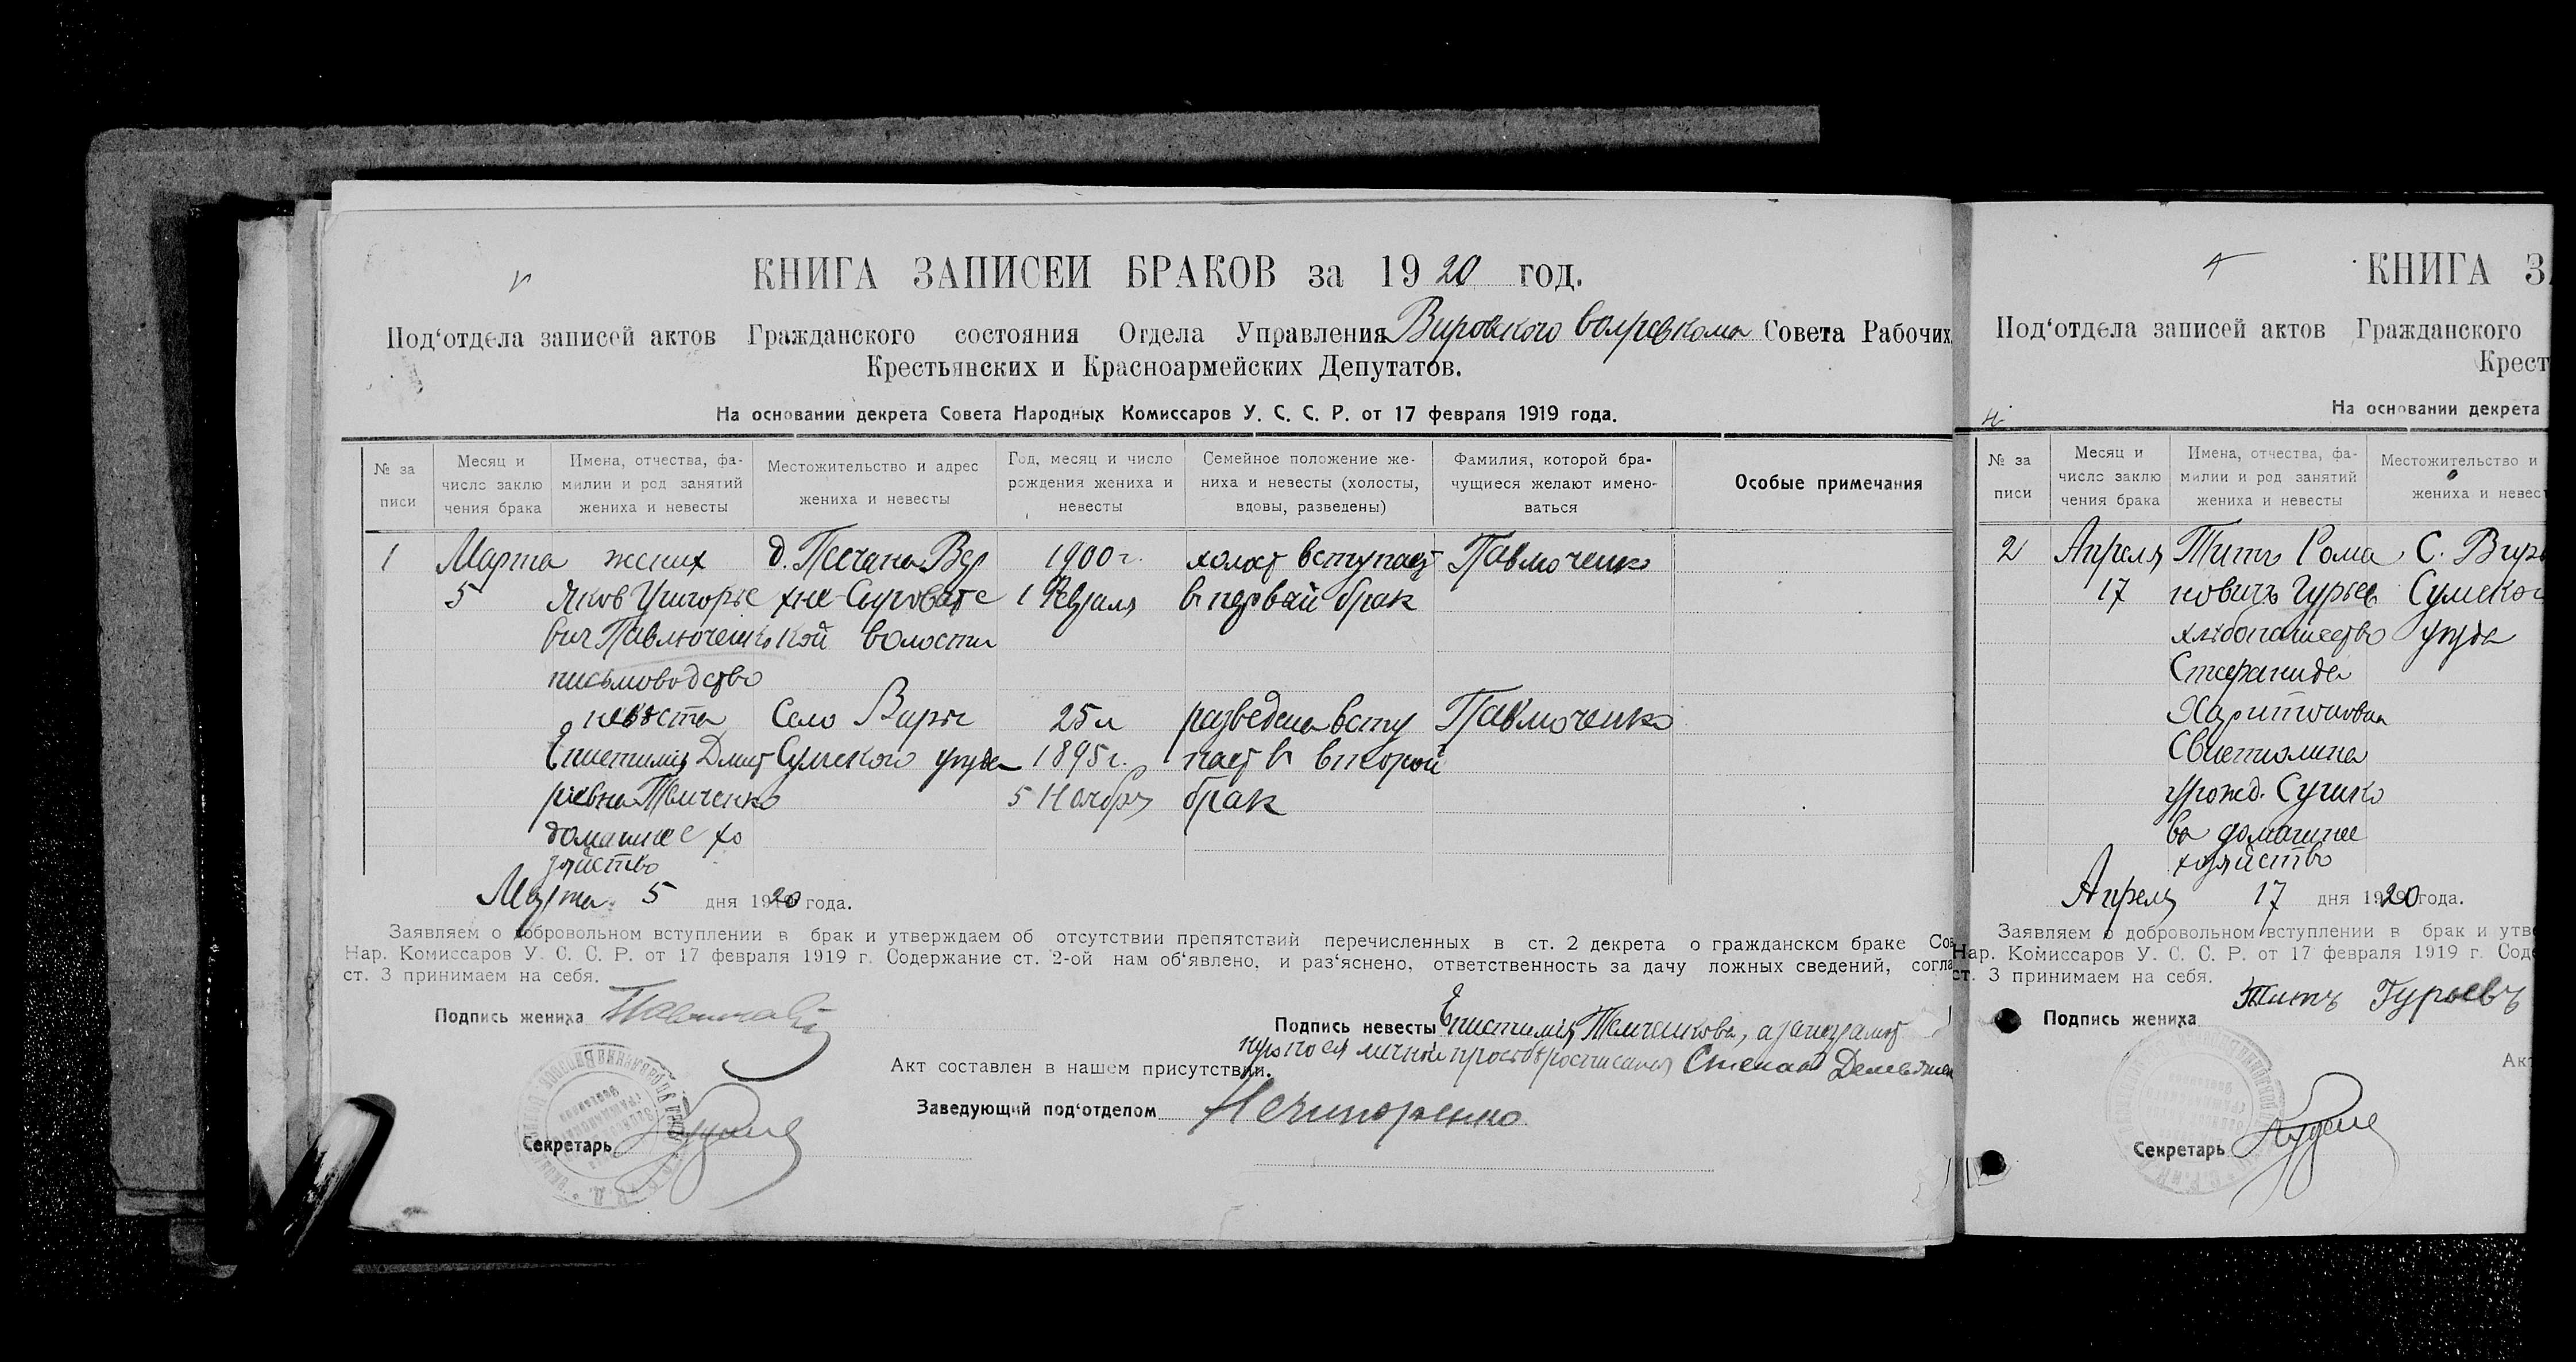 КНИГА ЗАПИСЕЙ БРАКОВ за 1920 год.
Под‘отдела записей актов Гражданского состояния Отдела Управления Вировского волревкома Совета Рабочих,
Крестьянских и Красноармейских Депутатов.
На основании декрета Совета Народных Комиссаров У. С. С. Р. от 17 февраля 1919 года.
№ за писи
Месяц и число заклю чения брака
Имена, отчества, фа- милии и род занятий жениха и невесты
Местожительство и адрес жениха и невесты
Год, месяц и число рождения жениха и невесты
Семейное положение же- ниха и невесты (холосты, вдовы, разведены)
Фамилия, которой бра- чущиеся желают имено- ваться
Особые примечания
1 Марта жених д. Песчана Вер 1900 г. холост вступает Павлюченко
5 Яков Григорье хне-Сыроватс 1 Февраля в первый брак
вич Павлюченко кой волости
письмоводство
невеста Село Виры 25 л разведена всту Павлюченко
Епистимия Дмит Сумского уезда 1895 г. пает в второй
риевна Темченко 5 Ноября брак
домашнее хо
зяйство
Марта 5 дня 1920 года.
Заявляем о добровольном вступлении в брак и утверждаем об отсутствии препятствий перечисленных в ст. 2 декрета о гражданском браке Сов
Нар. Комиссаров У. С. С. Р. от 17 февраля 1919 г. Содержание ст. 2-ой нам об‘явлено, и раз‘яснено, ответственность за дачу ложных сведений, согла
ст. 3 принимаем на себя.
Подпись жениха
Подпись невесты Епистимия Темченкова, а за неграмот
ную по ея личной просьбе росписался Степан
Акт составлен в нашем присутствии.
Заведующий под‘отделом Нечипоренко
Секретарь
КНИГА ЗА
Под‘отдела записей актов Гражданского
Крест
На основании декрета
№ за писи
Месяц и число заклю чения брака
Имена, отчества, фа- милии и род занятий жениха и невесты
Местожительство и
жениха и невес
2 Апреля Титъ Рома С. Виры
17 новичъ Гурьев Сумског
хлебопашество уезда
Стефанида
Харитоновна
Светлична
урожд. Сушко
ва домашнее
хозяйство
Апреля 17 дня 1920 года.
Заявляем о добровольном вступлении в брак и утве
Нар. Комиссаров У. С. С. Р. от 17 февраля 1919 г. Соде
ст. 3 принимаем на себя.
Подпись жениха Титъ Гурьевъ
Ак
Секретарь